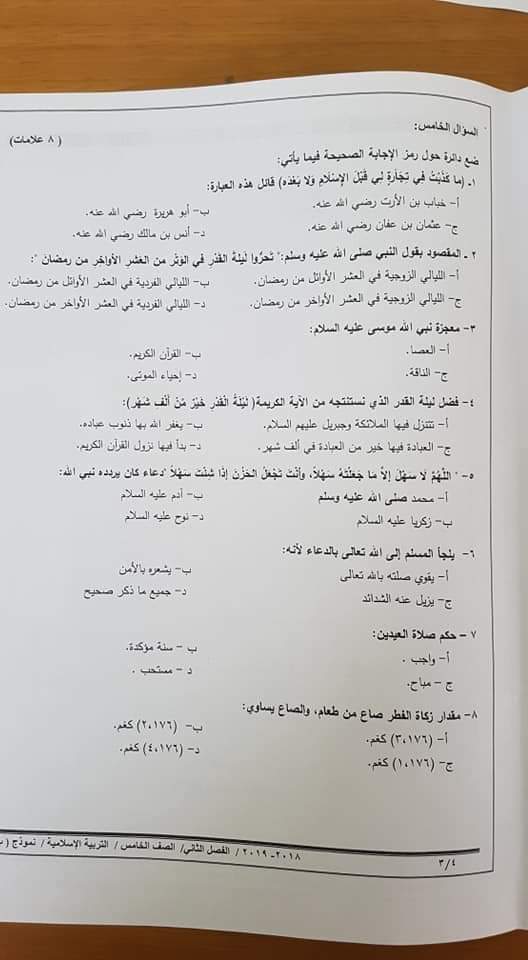 السؤال الخامس: (٨ علامات)
ضع دائرة حول رمز الإجابة الصحيحة فيما يأتي:
١ـ (ما كَذَبْتُ في تِجَارَةٍ لي قَبْلَ الإِسْلَامِ وَلا بَعْدَه) قائل هذه العبارة:
أ- خباب بن الأرت رضي الله عنه. ب- أبو هريرة رضي الله عنه.
ج- عثمان بن عفان رضي الله عنه. د- أنس بن مالك رضي الله عنه.
٢ ـ المقصود بقول النبي صلى الله عليه وسلم:" تَحَرُّوا لَيْلَةَ القَدْرِ في الوَتْرِ من العَشْرِ الأواخِرِ من رمضان ":
أ- الليالي الزوجية في العشر الأوائل من رمضان. ب- الليالي الفردية في العشر الأوائل من رمضان.
ج- الليالي الزوجية في العشر الأواخر من رمضان. د- الليالي الفردية في العشر الأواخر من رمضان.
٣- معجزة نبي الله موسى عليه السلام:
أ- العصا. ب- القرآن الكريم.
ج- الناقة. د- إحياء الموتى.
٤- فضل ليلة القدر الذي نستنتجه من الآية الكريمة( لَيْلَةُ الْقَدْرِ خَيْرٌ مِّنْ أَلْفِ شَهْرٍ):
أ- تتنزل فيها الملائكة وجبريل عليهم السلام. ب- يغفر الله بها ذنوب عباده.
ج- العبادة فيها خير من العبادة في ألف شهر. د- بدأ فيها نزول القرآن الكريم.
٥- " اللَّهُمَّ لَا سَهْلَ إلاَّ مَا جَعَلْتَهُ سَهْلاً، وأنْتَ تَجْعَلُ الحَزْنَ إذَا شِئْتَ سَهْلاً "دعاء كان يردده نبي الله:
أ- محمد صلى الله عليه وسلم ب- آدم عليه السلام
ب- زكريا عليه السلام د- نوح عليه السلام
٦- يلجأ المسلم إلى الله تعالى بالدعاء لأنه:
أ- يقوي صلته بالله تعالى ب- يشعره بالأمن
ج- يزيل عنه الشدائد د- جميع ما ذكر صحيح
٧ – حكم صلاة العيدين:
أ- واجب . ب - سنة مؤكدة.
ج - مباح. د - مستحب .
٨- مقدار زكاة الفطر صاع من طعام، والصاع يساوي:
أ- (٣،١٧٦) كغم. ب- (٢،١٧٦) كغم.
ج- (١،١٧٦) كغم. د- (٤،١٧٦) كغم.
٢٠١٨ـ ٢٠١٩ / الفصل الثاني/ الصف الخامس / التربية الإسلامية / نموذج ( ب
٣/٤